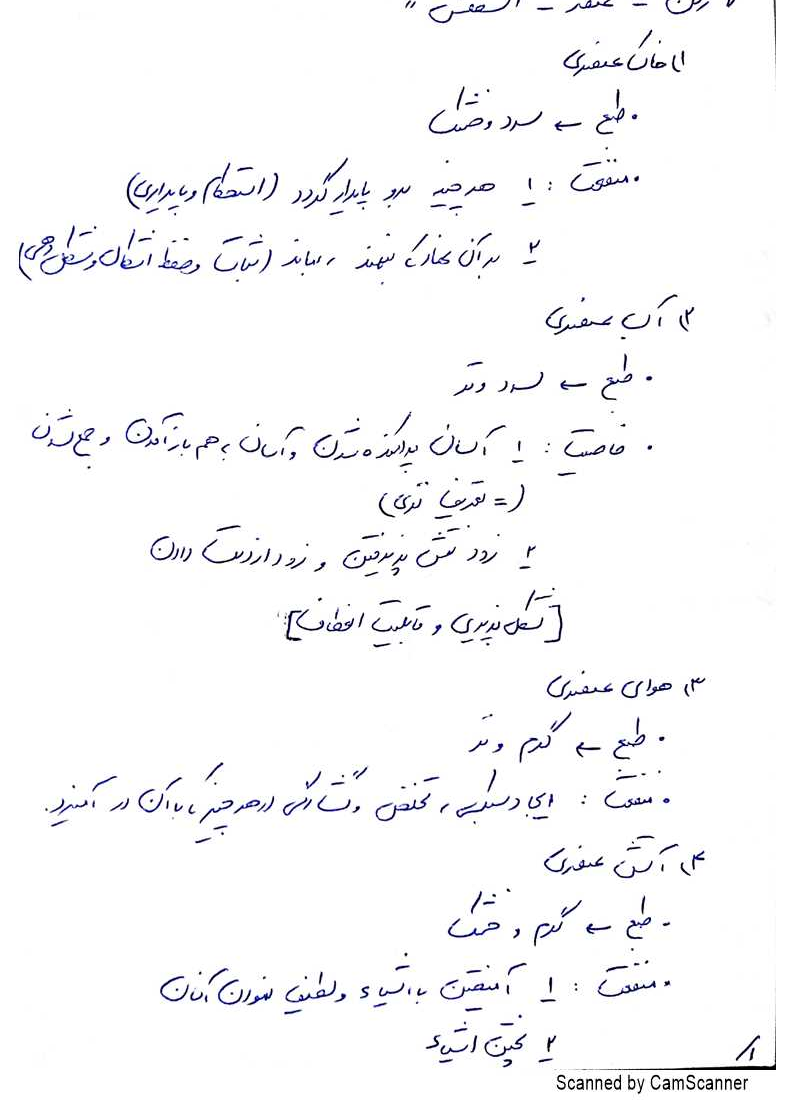 ارکان - عنصر - اسطقس "
۱) خاک عنصری
• طبع ← سرد و خشک
• منفعت : ۱ هر چیز بدو پایدار گردد (استحکام و پایداری)
۲ بر آن نهند ، بماند (ثبات و حفظ اشکال و شکل دهی)
۲) آب عنصری
• طبع ← سرد و تر
• خاصیت : ۱ آسان پراکنده شدن و آسان بهم باز آمدن و جمع شدن
(= تعریف تری)
۲ زود نقش پذیرفتن و زود از دست دادن
[شکل پذیری و قابلیت انعطاف]
۳) هوای عنصری
• طبع ← گرم و تر
• منفعت : ایجاد سبکی ، تخلخل و گشادگی در هر چیز که با آن در آمیزد.
۴) آتش عنصری
• طبع ← گرم و خشک
• منفعت : ۱ آمیختن با اشیاء و لطیف نمودن آنان
۲ پختن اشیاء
۱/
Scanned by CamScanner